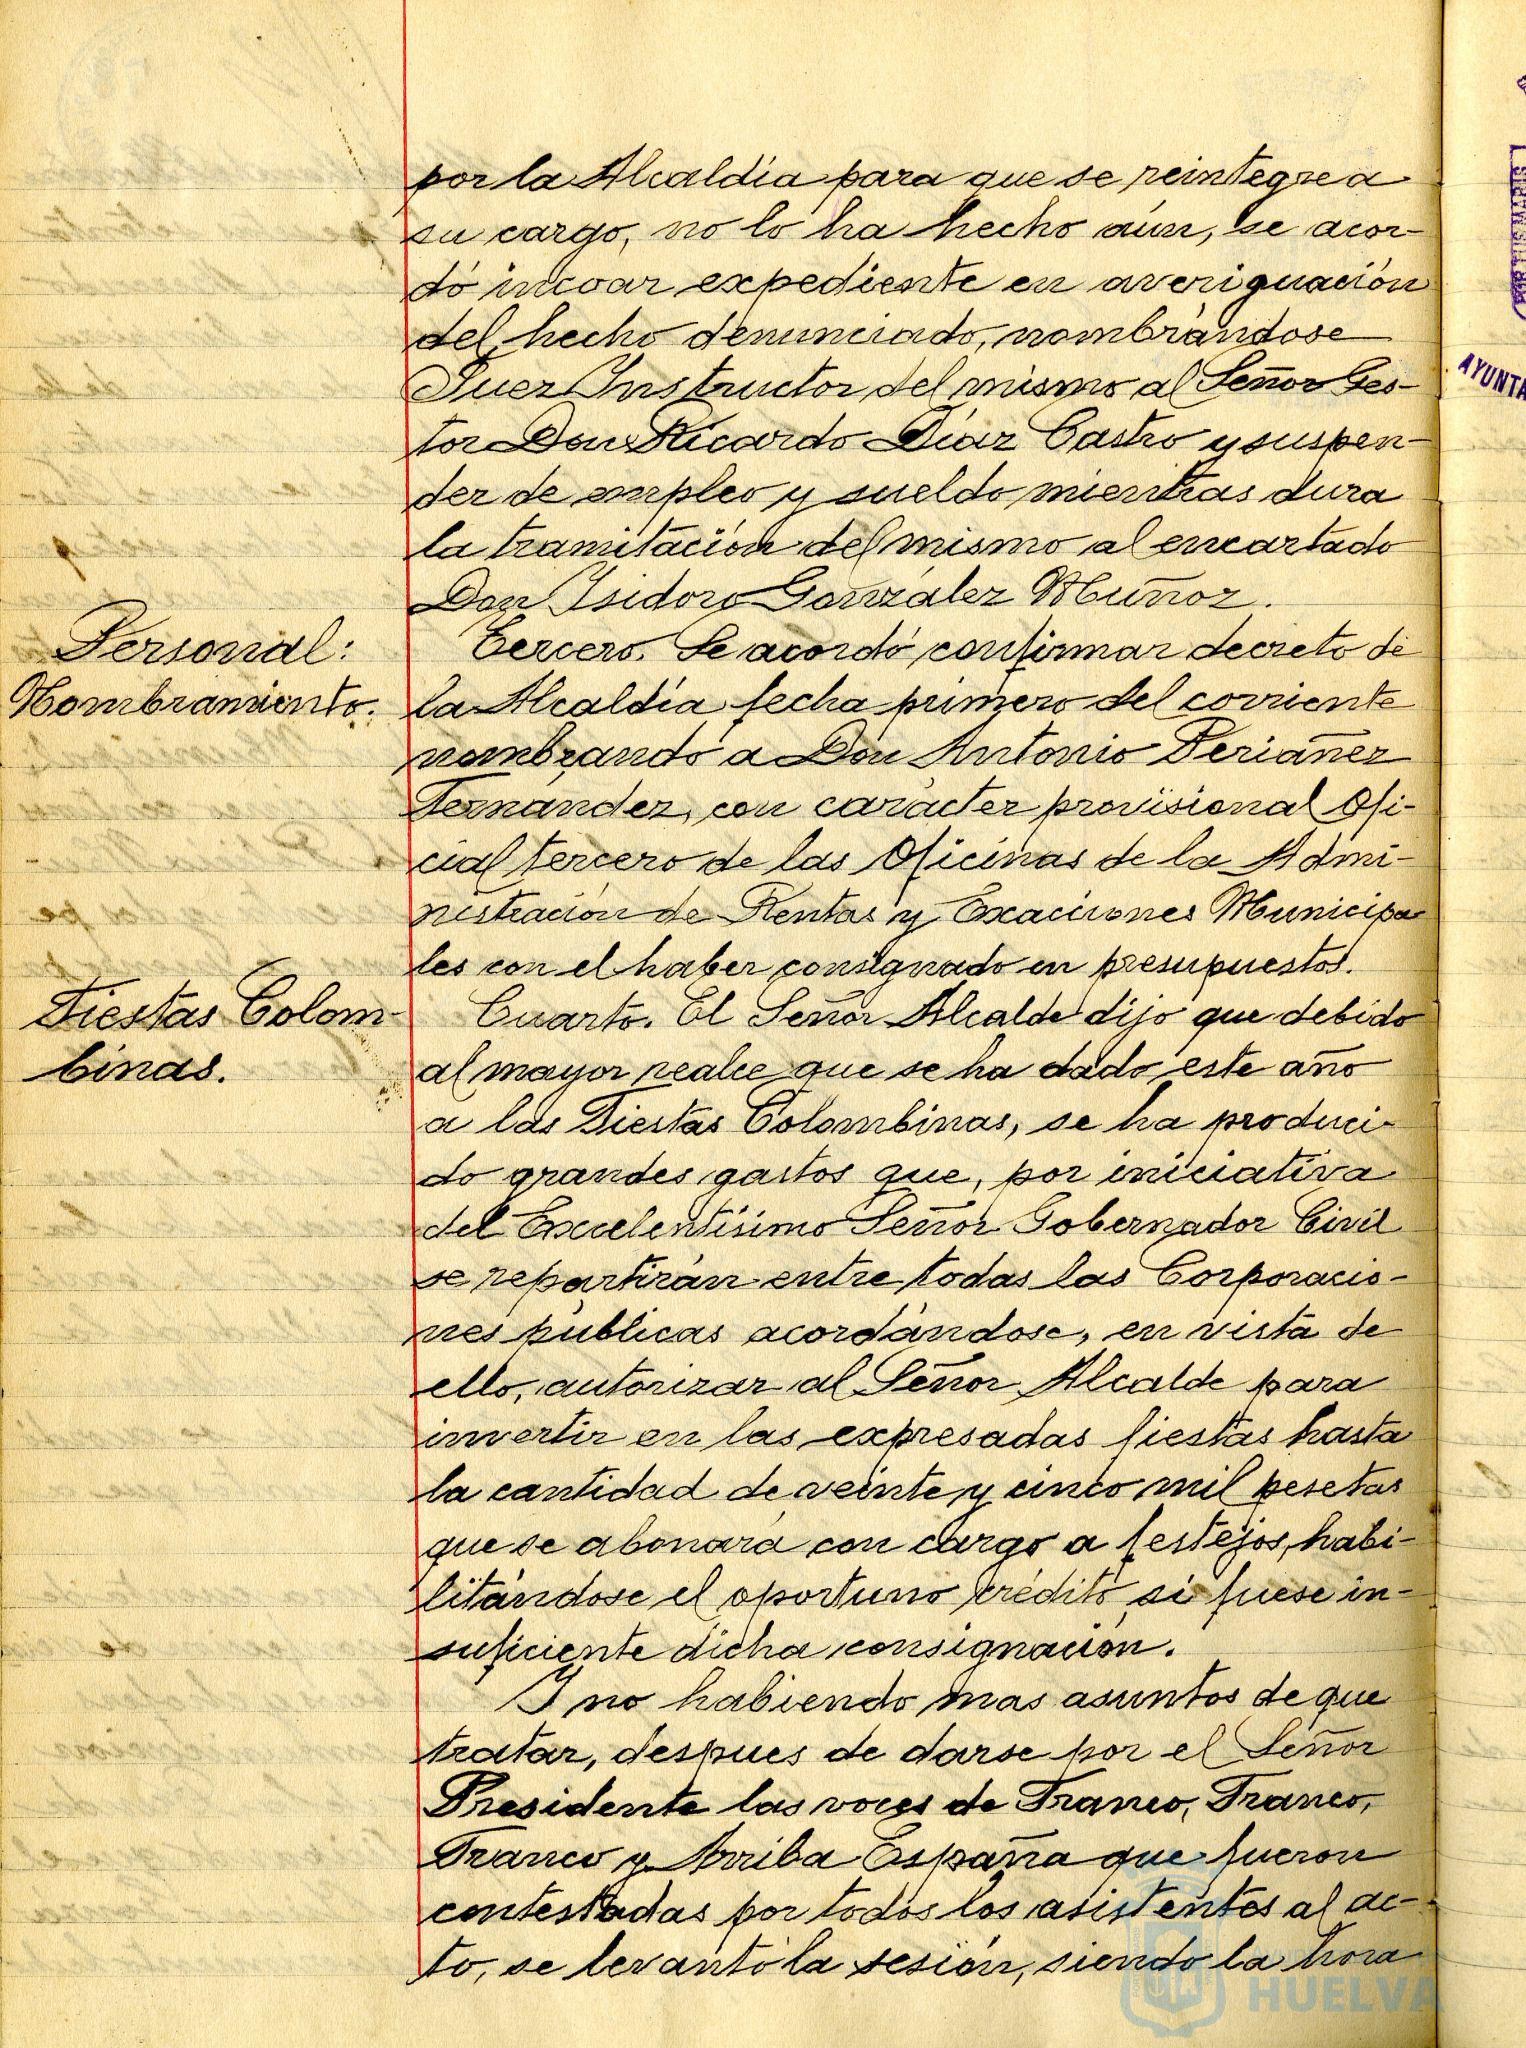 por la Alcaldía para que se reintegre a
su cargo, no lo ha hecho aún, se acor-
dó incoar expediente en averiguación
del hecho denunciado, nombrándose
Juez Instructor del mismo al Señor Ges-
tor Don Ricardo Díaz Castro y suspen-
der de empleo y sueldo mientras dura
la tramitación del mismo al encartado
Don Isidoro González Muñoz.
Personal:
Nombramiento.
Tercero. Se acordó confirmar decreto de
la Alcaldía fecha primero del corriente
nombrando a Don Antonio Periañez
Fernández, con carácter provisional Ofi-
cial tercero de las Oficinas de la Admi-
nistración de Rentas y Exacciones Municipa-
les con el haber consignado en presupuestos.
Fiestas Colom-
binas.
Cuarto. El Señor Alcalde dijo que debido
al mayor realce que se ha dado este año
a las Fiestas Colombinas, se ha produci-
do grandes gastos que, por iniciativa
del Excelentísimo Señor Gobernador Civil
se repartirán entre todas las Corporacio-
nes públicas acordándose, en vista de
ello, autorizar al Señor Alcalde para
invertir en las expresadas fiestas hasta
la cantidad de veinte y cinco mil pesetas
que se abonará con cargo a festejos, habi-
litándose el oportuno crédito si fuese in-
suficiente dicha consignación.
Y no habiendo mas asuntos de que
tratar, despues de darse por el Señor
Presidente las voces de Franco, Franco,
Franco y Arriba España que fueron
contestadas por todos los asistentes al ac-
to, se levantó la sesión, siendo la hora
HUELVA
POR TUS MARIS
AYUNTA